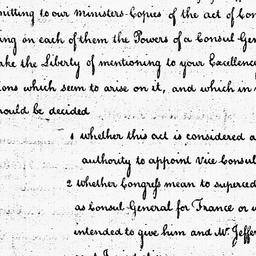 mitting to our Ministers Copies of the act of Con
ing on each of them the Powers of a Consul Gen
ake the Liberty of mentioning to your Excellence
ions which seem to arise on it, and which in
hould be decided
1 whether this act is considered a
authority to appoint Vice Consul
2 whether Congress mean to supercede
as Consul General for France or
intended to give him and Mr. Jeffer